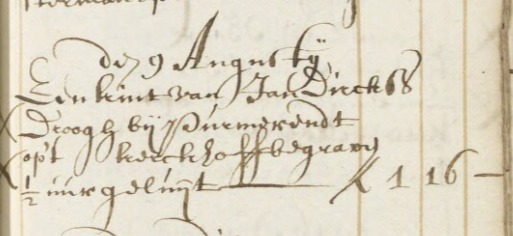 den 9 Augusty
Een kint van Jan Dircksz
Droogh bij Purmerendt
opt kerckhoff begraven
½ uur geluijt — 1 16 —